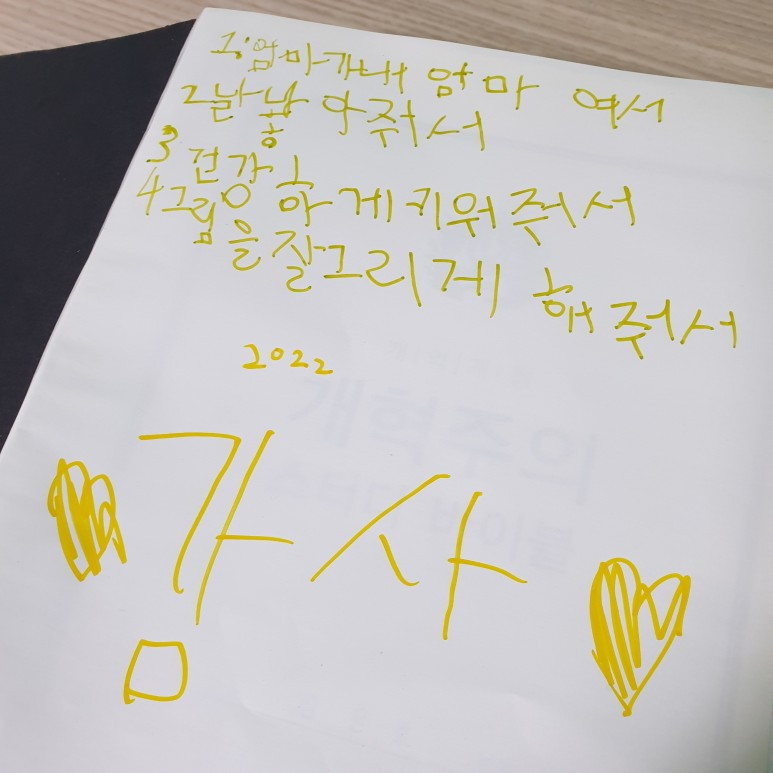 1. 엄마가 내 엄마 여서
2 날 낳아 줘서
3 건강하게 키워 줘서
4 그림을 잘 그리게 해 줘서
2022
감사
개혁주의